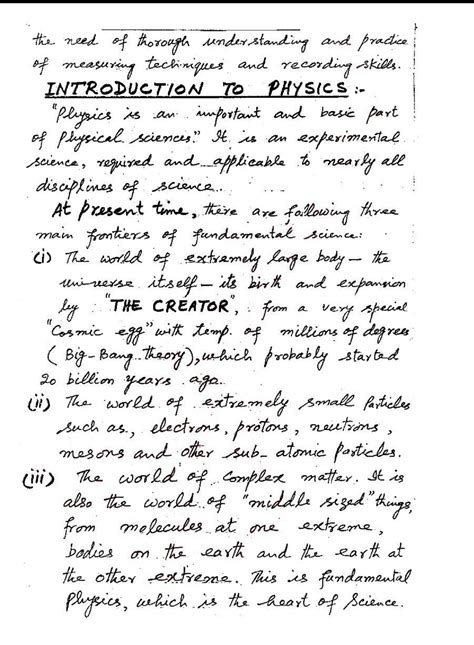 the need of thorough understanding and practice
of measuring techniques and recording skills.
INTRODUCTION TO PHYSICS :-
"Physics is an important and basic part
of Physical sciences." It is an experimental
science, required and applicable to nearly all
disciplines of science.
At Present time, there are following three
main frontiers of fundamental science:
(i) The world of extremely large body — the
universe itself — its birth and expansion
by "THE CREATOR", from a very special
"Cosmic egg" with temp. of millions of degrees
( Big-Bang theory), which probably started
20 billion years ago.
(ii) The world of extremely small Particles
such as, electrons, protons, neutrons,
mesons and other sub-atomic Particles.
(iii) The world of Complex matter. It is
also the world of "middle sized" things,
from molecules at one extreme,
bodies on the earth and the earth at
the other extreme. This is fundamental
Physics, which is the heart of Science.